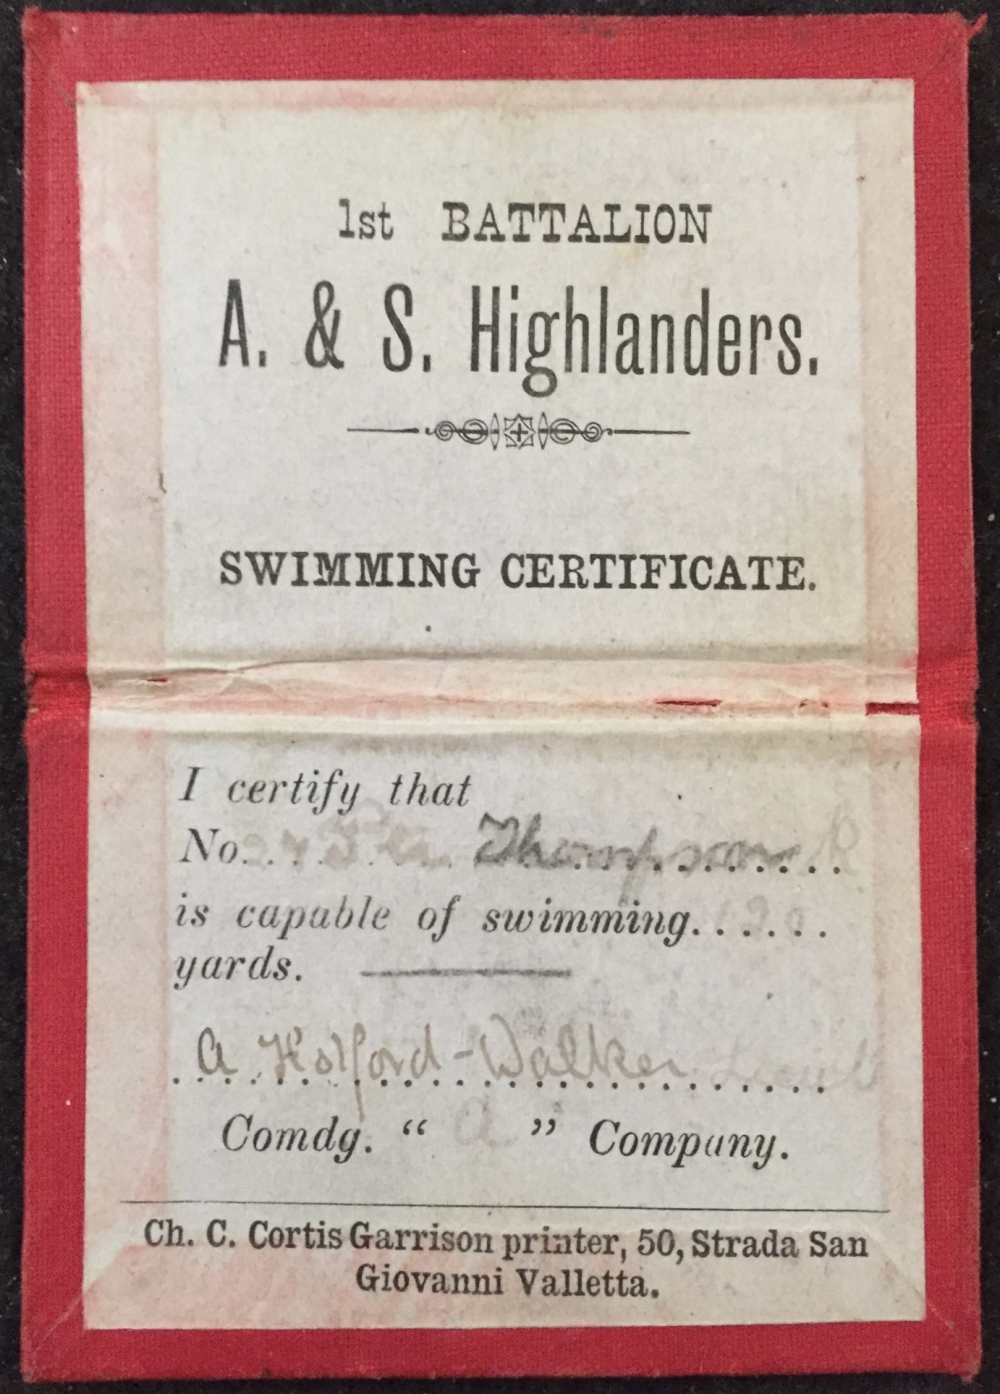 1st BATTALION
A. & S. Highlanders.
SWIMMING CERTIFICATE.
I certify that
No. Thompson
is capable of swimming......
yards.
A Holford-Walker
Comdg. “ A ” Company.
Ch. C. Cortis Garrison printer, 50, Strada San
Giovanni Valletta.